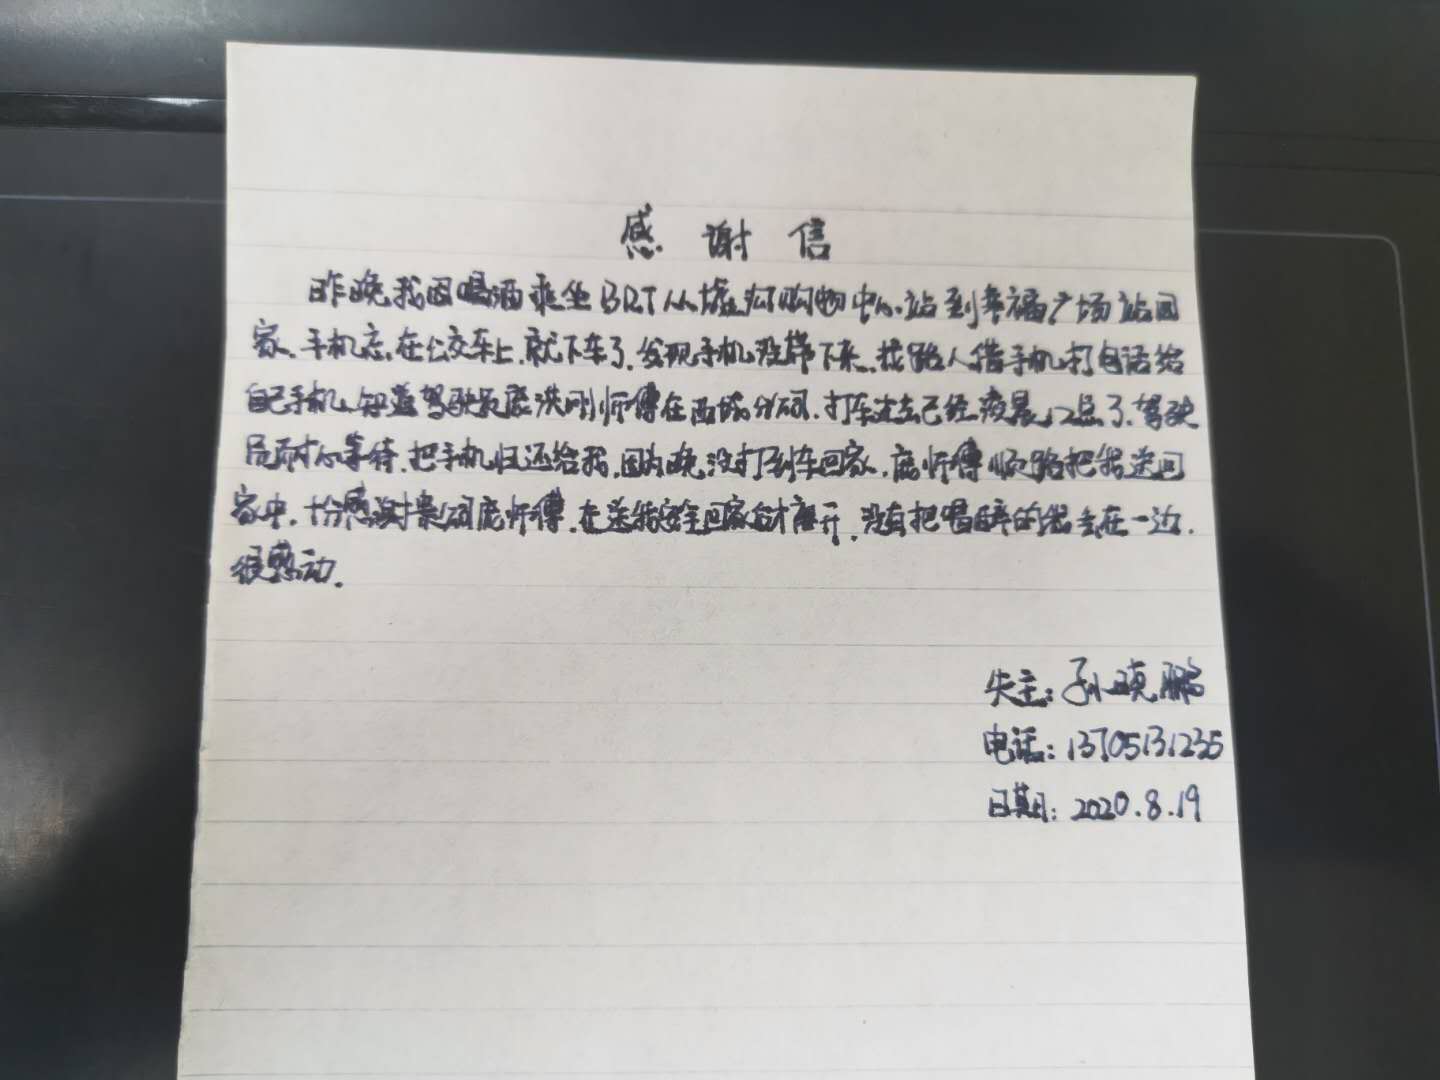 感谢信
昨晚我因喝酒乘坐BRT从墟沟购物中心站到幸福广场站回
家.手机忘在公交车上.就下车了.发现手机没带下来.找路人借手机打电话给
自己手机.知道驾驶员庞洪刚师傅在西城分公司.打车过去已经凌晨12点了.驾驶
员耐心等待.把手机归还给我.因为晚没打到车回家.庞师傅顺路把我送回
家中.十分感谢贵公司庞师傅.在送我安全回家后才离开.没有把喝醉的我丢在一边.
很感动.
失主:孙晓鹏
电话:13705131235
日期:2020.8.19